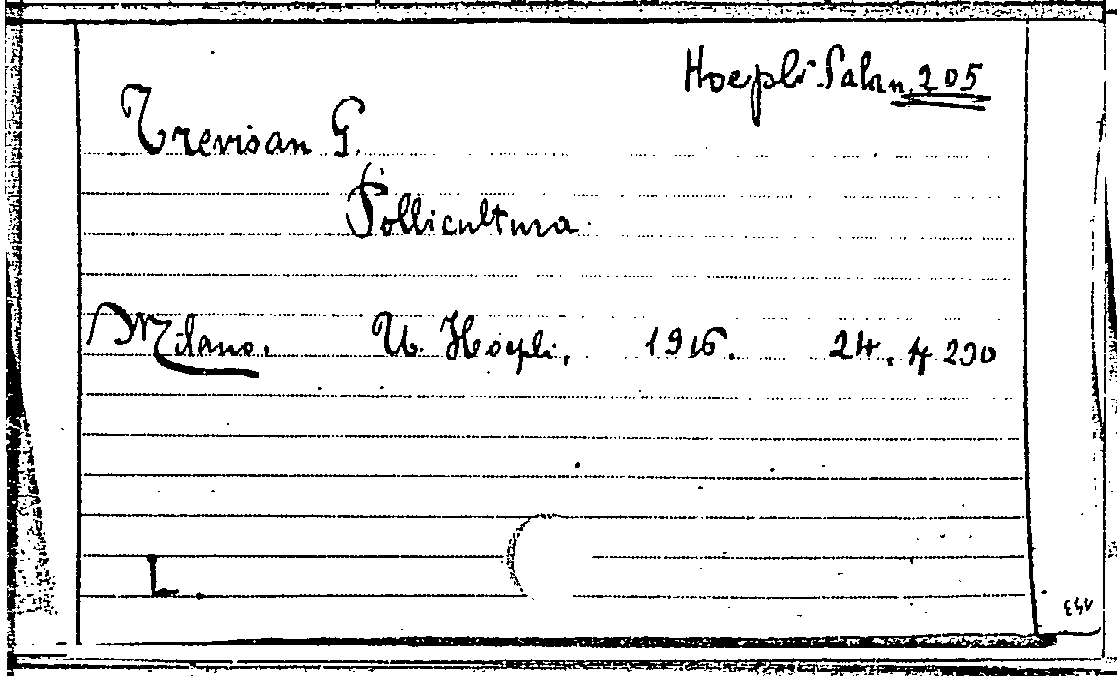 Hoepli Palan 205
Trevisan G.
Pollicultura.
Milano. U. Hoepli, 1916. 24. 4 230